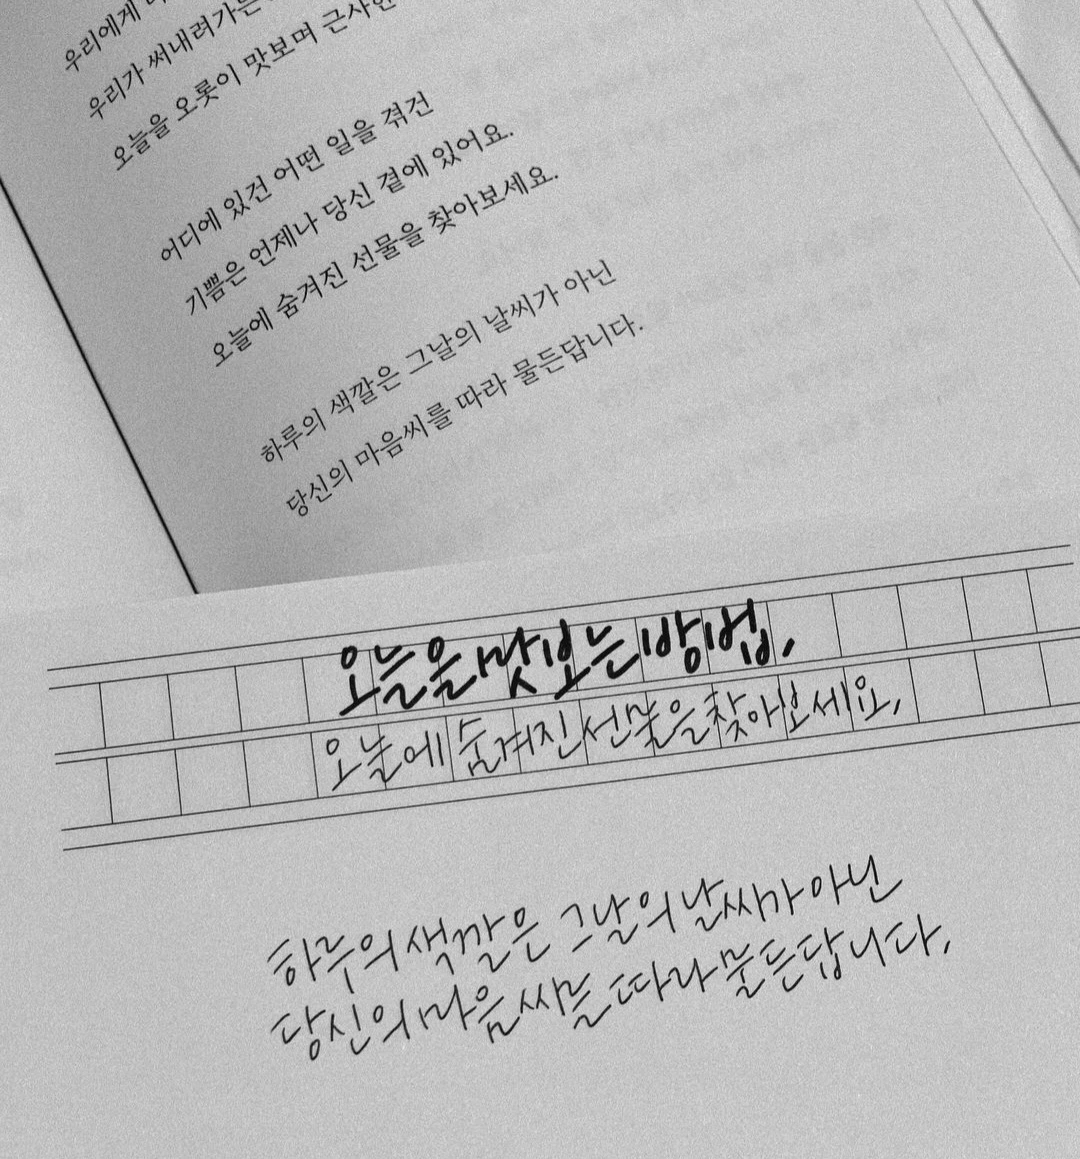 우리에게
우리가 써내려가는
오늘을 오롯이 맛보며 근사한
어디에 있건 어떤 일을 겪건
기쁨은 언제나 당신 곁에 있어요.
오늘에 숨겨진 선물을 찾아보세요.
하루의 색깔은 그날의 날씨가 아닌
당신의 마음씨를 따라 물든답니다.
오늘을 맛보는 방법,
오늘에 숨겨진 선물을 찾아보세요,
하루의 색깔은 그날의 날씨가 아닌
당신의 마음씨를 따라 물든답니다,